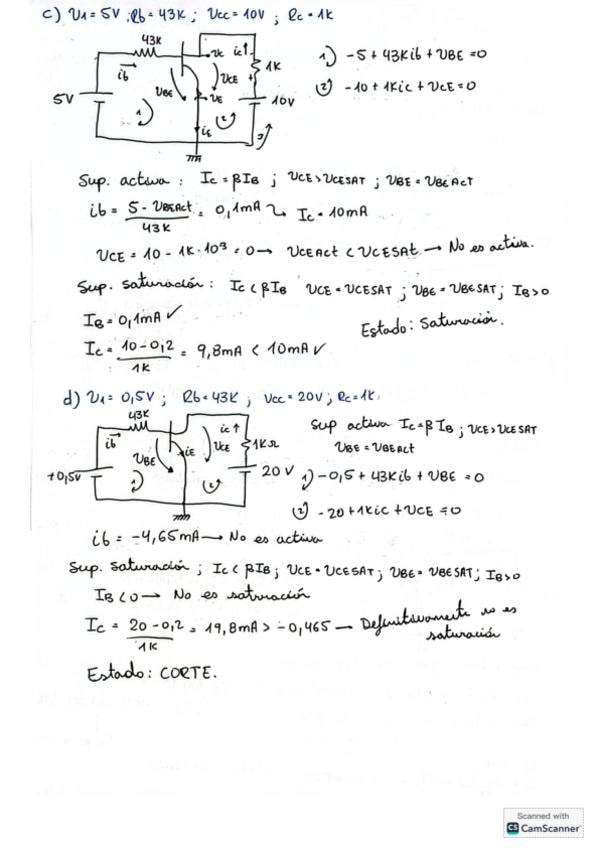 c) V1 = 5V ; Rb = 43K ; Vcc = 10V ; Rc = 1K
43K
ib
5V
VBE
1)
ic↑
vc
VCE
VE
iE
2)
1K
10V
1) -5 + 43Kib + VBE = 0
2) -10 + 1Kic + VCE = 0
Sup. activa : Ic = βIB ; VCE > VCESAT ; VBE = VBEAct
ib = 5 - VBEAct / 43K = 0,1mA → Ic = 10mA
VCE = 10 - 1K·10³ = 0 → VCEAct < VCESAT → No es activa.
Sup. saturación : Ic < βIB VCE = VCESAT ; VBE = VBESAT ; IB > 0
IB = 0,1mA ✓
Estado : Saturación.
Ic = 10 - 0,2 / 1K = 9,8mA < 10mA ✓
d) V1 = 0,5V ; Rb = 43K ; Vcc = 20V ; Rc = 1K.
43K
ib
+0,5V
VBE
1)
iE
ic↑
VCE
2)
1KΩ
20V
Sup activa Ic = βIB ; VCE > VCESAT
VBE = VBEACT
1) -0,5 + 43Kib + VBE = 0
2) -20 + 1Kic + VCE = 0
ib = -4,65mA → No es activa
Sup. saturación ; Ic < βIB ; VCE = VCESAT ; VBE = VBESAT ; IB > 0
IB < 0 → No es saturación
Ic = 20 - 0,2 / 1K = 19,8mA > -0,465 → Definitivamente no es saturación
Estado : CORTE.
Scanned with
CS CamScanner